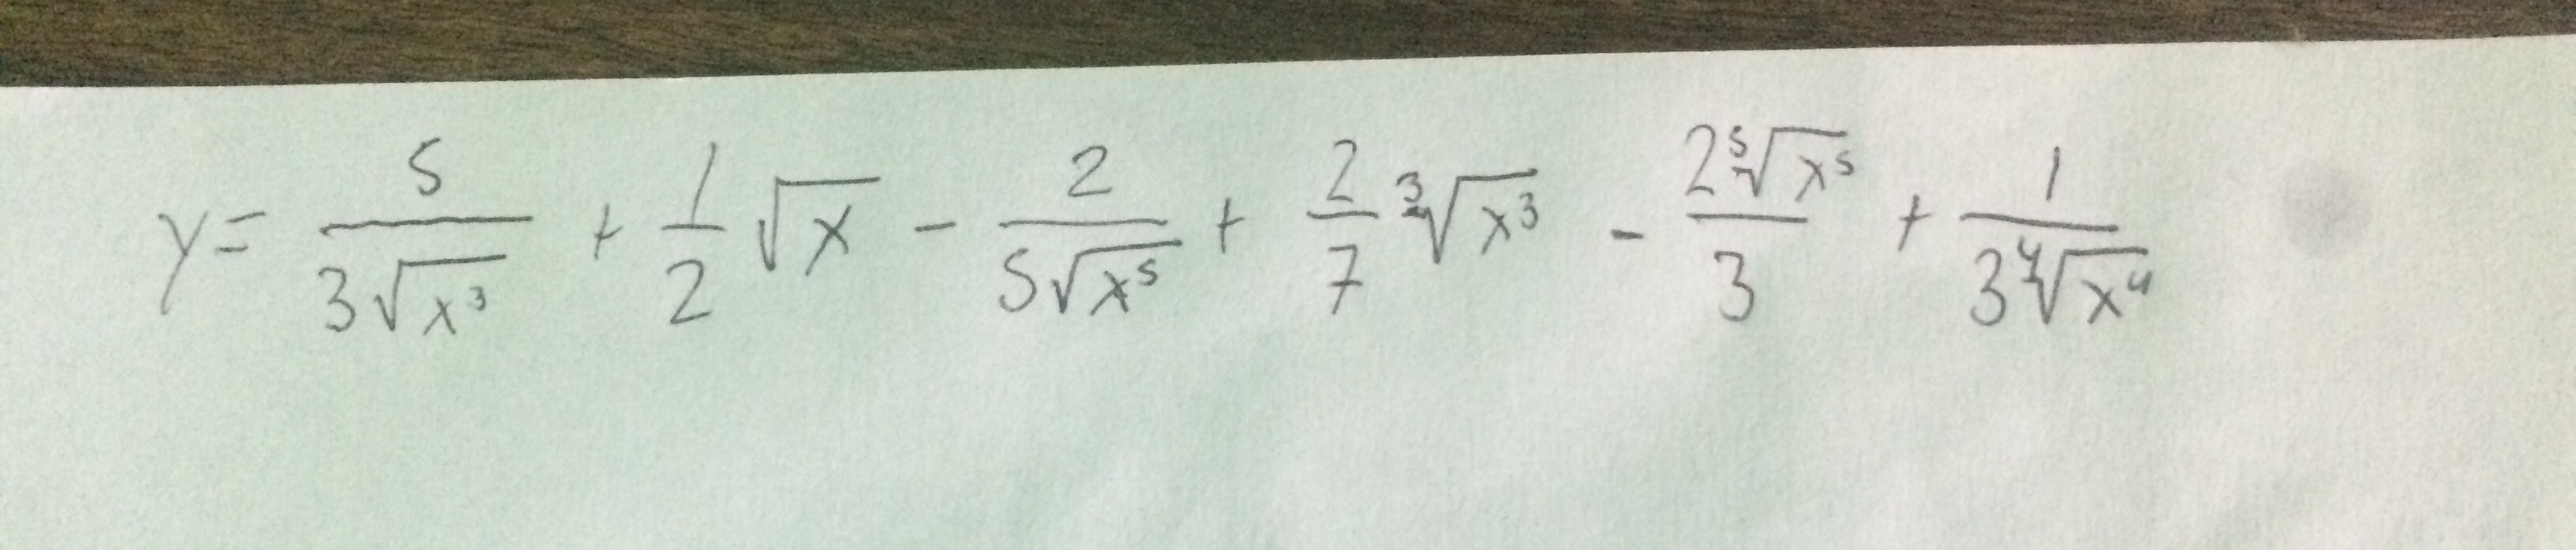 y = 5/(3√x³) + 1/2 √x - 2/(5√x⁵) + 2/7 ³√x³ - (2 ⁵√x⁵)/3 + 1/(3 ⁴√x⁴)